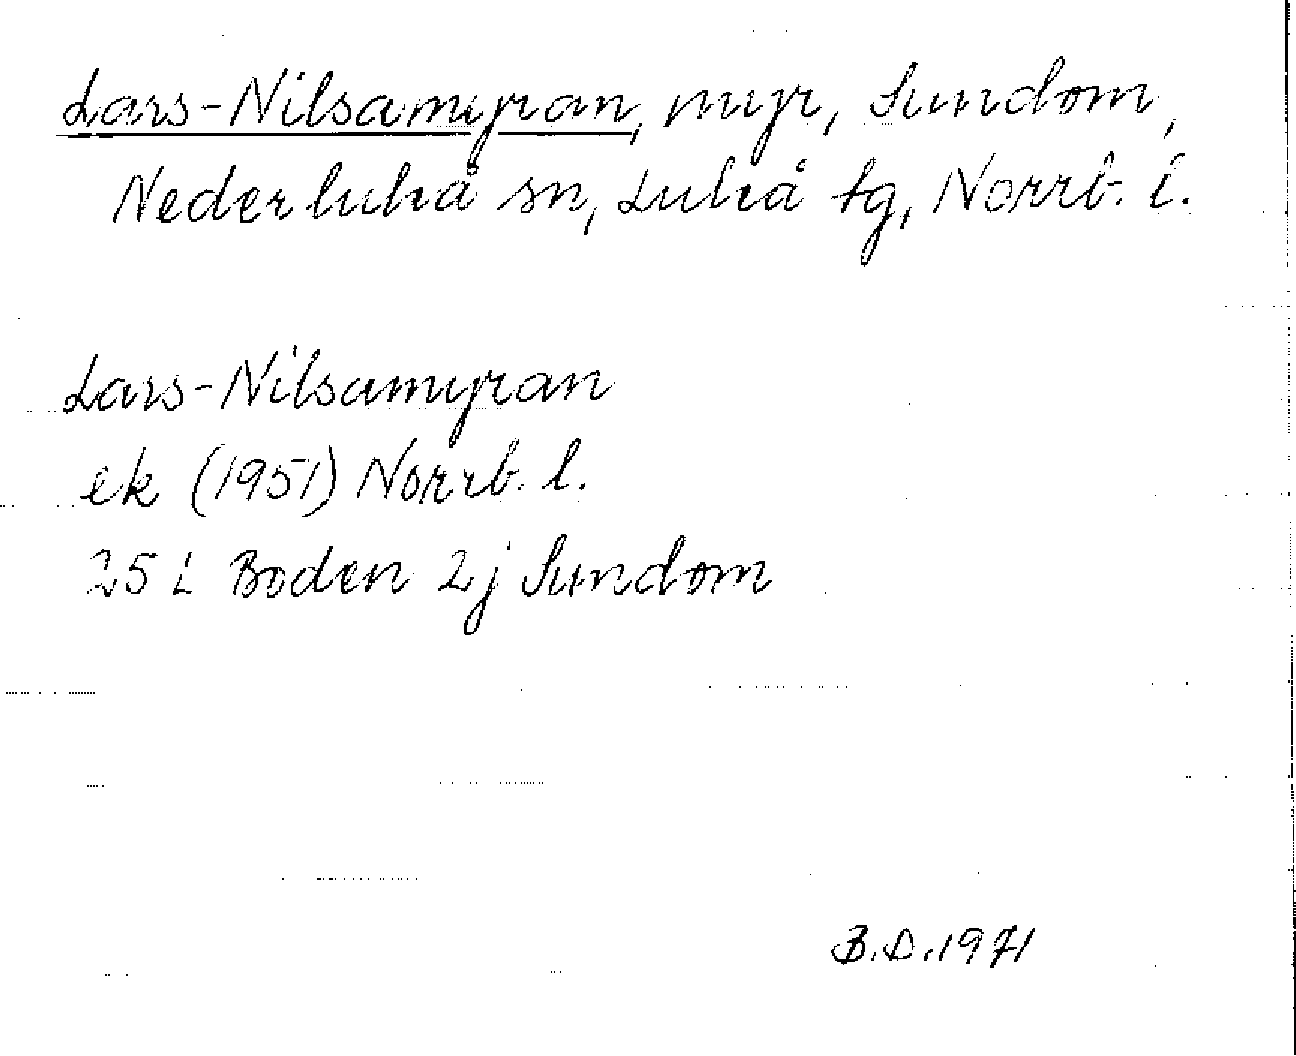 Lars-Nilsamyran, myr, Sundom,
Nederluleå sn, Luleå tg, Norrb. l.
Lars-Nilsamyran
ek (1951) Norrb. l.
25 L Boden 2j Sundom
B.D.1971